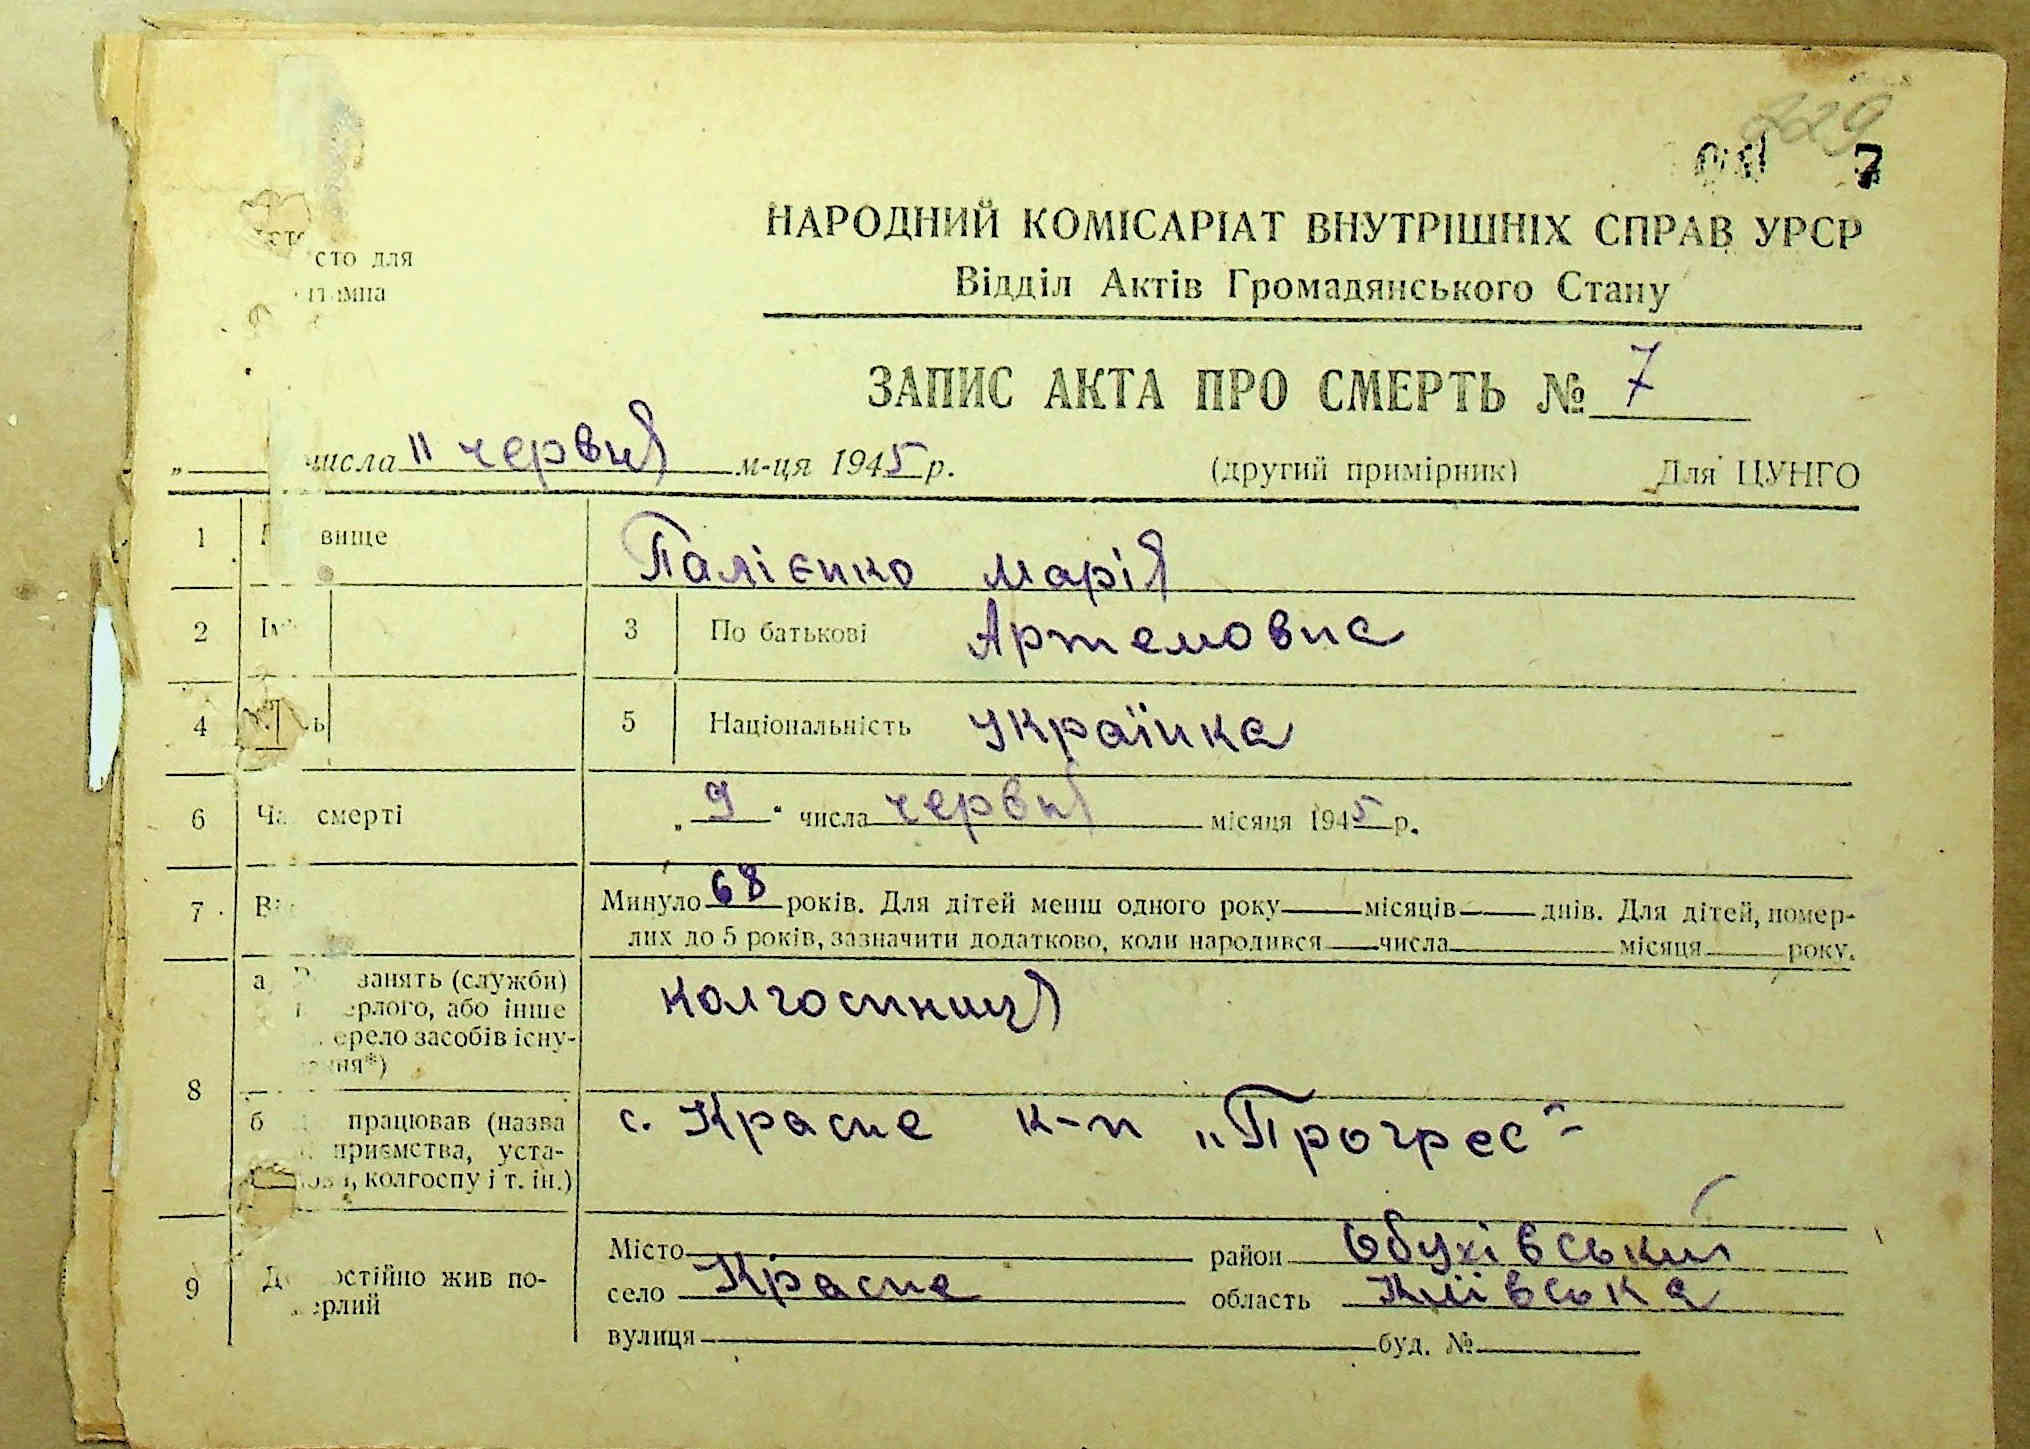 229
7
сто для
НАРОДНИЙ КОМІСАРІАТ ВНУТРІШНІХ СПРАВ УРСР
Відділ Актів Громадянського Стану
ЗАПИС АКТА ПРО СМЕРТЬ № 7
„ числа 11 червня м-ця 1945 р. (другий примірник) Для ЦУНГО
1 вище Палієнко Марія
2 3 По батькові Артемовна
4 5 Національність Українка
6 смерті „9“ числа червня місяця 1945 р.
7 Минуло 68 років. Для дітей менш одного року місяців днів. Для дітей, помер-
лих до 5 років, зазначити додатково, коли народився числа місяця року.
8 а занять (служби) колгоспниця
ерлого, або інше
ерело засобів існу-
ня*)
б працював (назва с. Красне к-п „Прогрес"
приємства, уста-
, колгоспу і т. ін.)
Місто район Обухівський
9 остійно жив по- село Красне область Київська
ерлий
вулиця буд. №